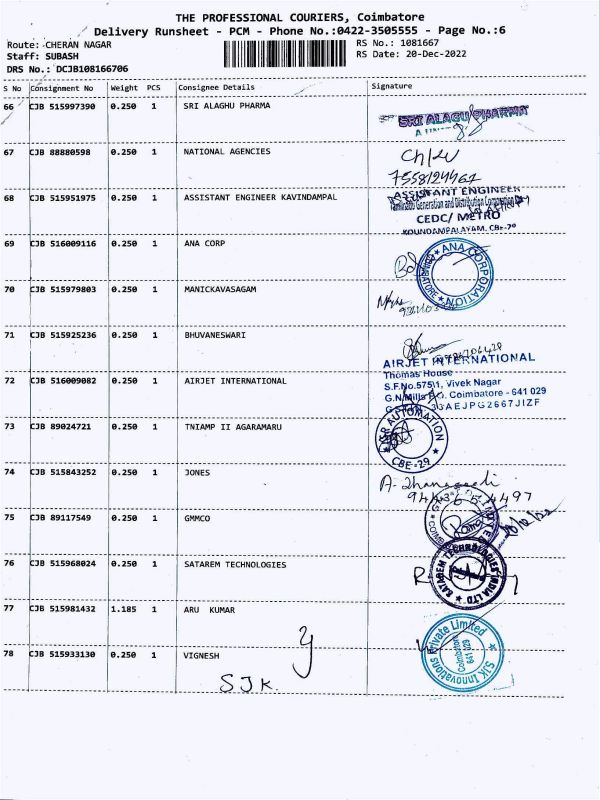 THE PROFESSIONAL COURIERS, Coimbatore
Delivery Runsheet - PCM - Phone No.:0422-3505555 - Page No.:6
Route: CHERAN NAGAR
Staff: SUBASH
DRS No.: DCJB108166706
RS No.: 1081667
RS Date: 20-Dec-2022
S No Consignment No Weight PCS Consignee Details Signature
66 CJB 515997390 0.250 1 SRI ALAGHU PHARMA
SRI ALAGU PHARMA
67 CJB 88880598 0.250 1 NATIONAL AGENCIES
7558124462
68 CJB 515951975 0.250 1 ASSISTANT ENGINEER KAVINDAMPAL
ASSISTANT ENGINEER
Tamilnadu Generation and Distribution Corporation
CEDC/ METRO
KOUNDAMPALAYAM, CBE-70
69 CJB 516009116 0.250 1 ANA CORP
ANA CORPORATION
70 CJB 515979803 0.250 1 MANICKAVASAGAM
71 CJB 515925236 0.250 1 BHUVANESWARI
72 CJB 516009082 0.250 1 AIRJET INTERNATIONAL
AIRJET INTERNATIONAL
Thomas House
S.F.No.575\1, Vivek Nagar
G.N.Mills P.O. Coimbatore - 641 029
73 CJB 89024721 0.250 1 TNIAMP II AGARAMARU
AUTOMATION
CBE-29
74 CJB 515843252 0.250 1 JONES
75 CJB 89117549 0.250 1 GMMCO
76 CJB 515968024 0.250 1 SATAREM TECHNOLOGIES
SATAREM TECHNOLOGIES INDIA LTD
77 CJB 515981432 1.185 1 ARU KUMAR
78 CJB 515933130 0.250 1 VIGNESH
SJK Innovations Private Limited
Coimbatore
641 029
SJK.